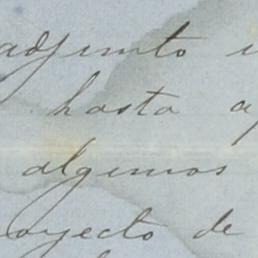 adjunto
hasta a
algunos
royecto de